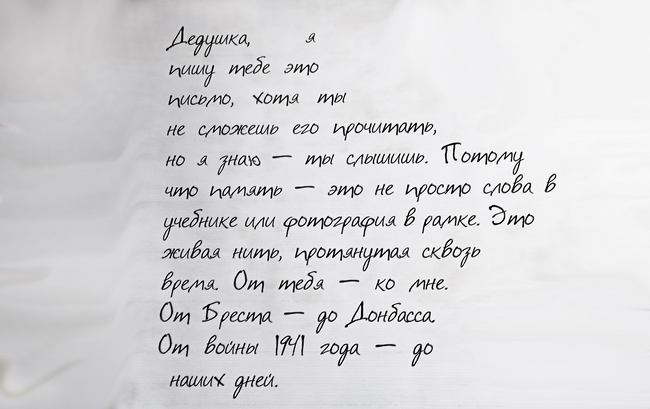 Дедушка, я
пишу тебе это
письмо, хотя ты
не сможешь его прочитать,
но я знаю — ты слышишь. Потому
что память — это не просто слова в
учебнике или фотография в рамке. Это
живая нить, протянутая сквозь
время. От тебя — ко мне.
От Бреста — до Донбасса.
От войны 1941 года — до
наших дней.